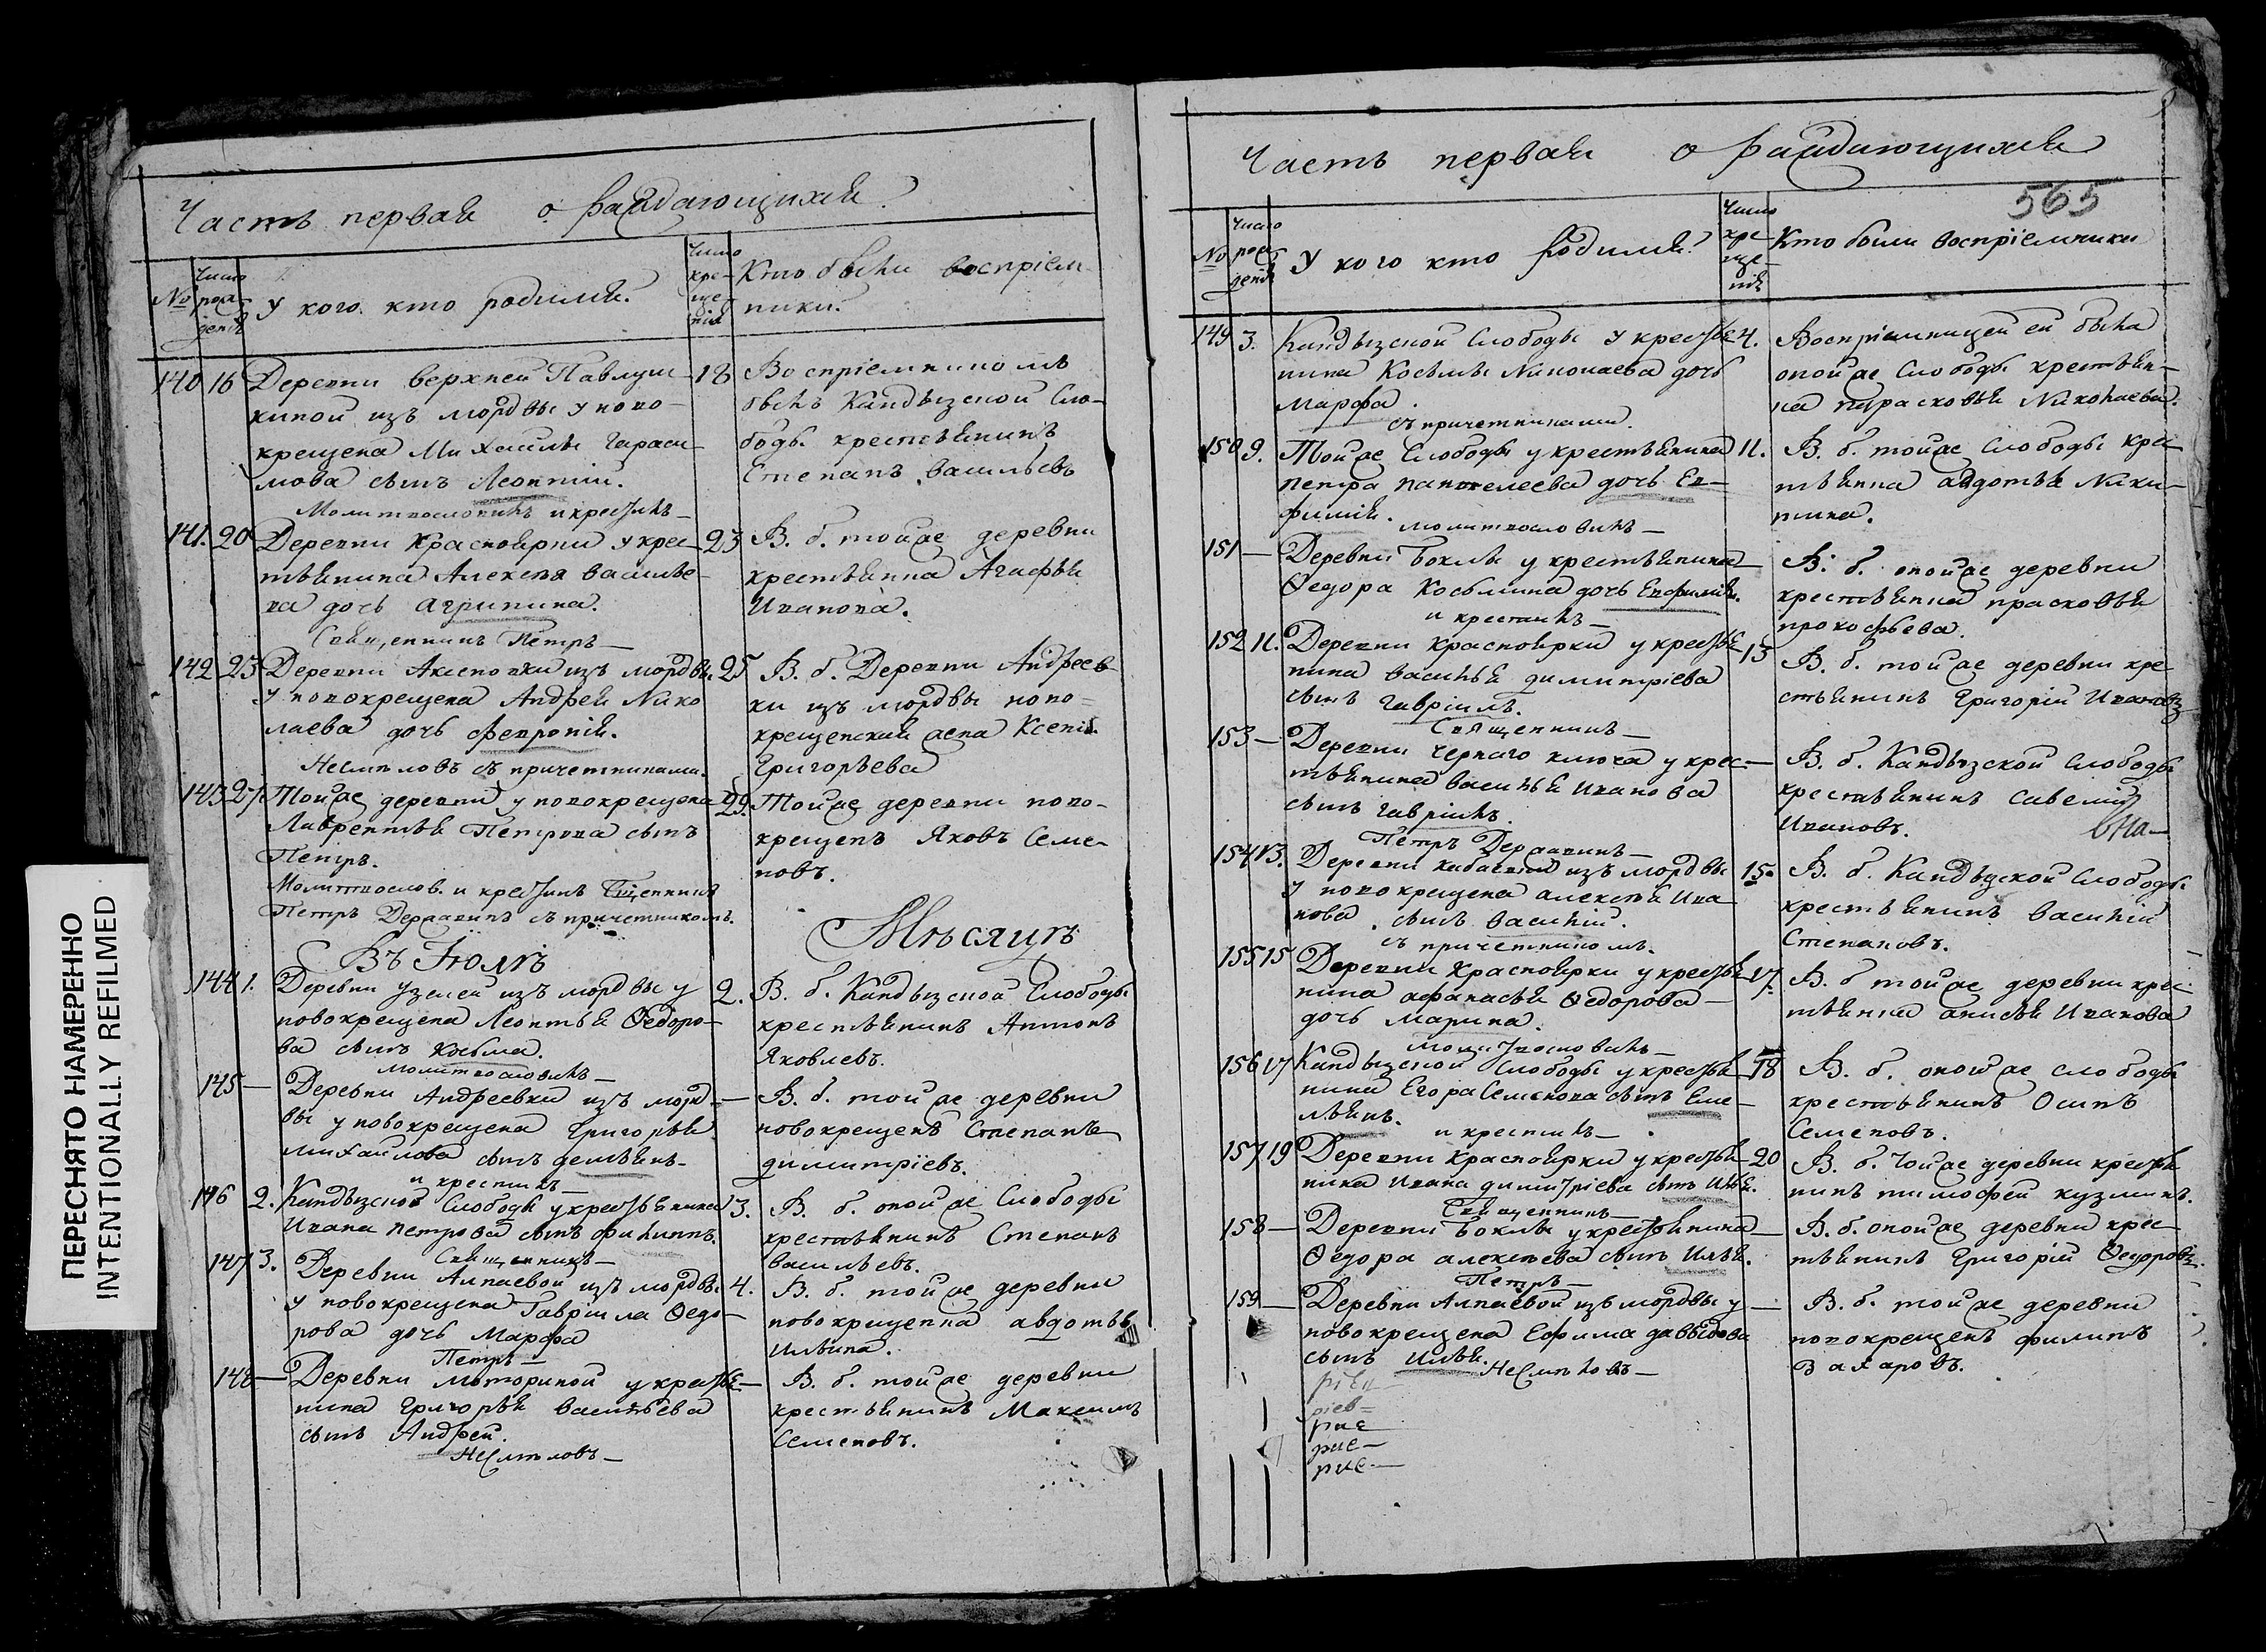 ПЕРЕСНЯТО НАМЕРЕННО
INTENTIONALLY REFILMED
Часть первая о раждающихся.
№
Число рождения
У кого кто родился.
Число крещения
Кто были восприем-
ники.
140 16 Деревни верхней Павлуш-
киной изъ мордвы у ново-
крещена Михаилы Гараси-
мова сынъ Леонтий.
Молитвословилъ и крестилъ
18 Восприемникомъ
былъ Кандызской Сло-
боды крестьянинъ
Степанъ васильевъ
141. 20 Деревни Красноярки у крес-
тьянина Алексея василье-
ва дочь агрипина.
Священникъ Петръ
23 В. б. тойже деревни
крестьянка Агафья
Иванова.
142 23 Деревни Аксеновки изъ мордвы
у новокрещена Андрея Нико
лаева дочь феврония.
Несмеловъ съ причетниками.
25 В. б. Деревни Андреев
ки изъ мордвы ново-
крещенская жена Ксения
Григорьева
143 27 Тойже деревни у новокрещена
Лаврентья Петрова сынъ
Петръ.
Молитвослов. и крестилъ Священникъ
Петръ Державинъ съ причетникомъ.
29. Тойже деревни ново-
крещенъ Яковъ Семе-
новъ.
Въ Июлѣ
Мѣсяцѣ
144 1. Деревни узелей изъ мордвы у
новокрещена Леонтья Ѳедоро-
ва сынъ Косьма.
молитвословилъ
2. В. б. Кандызской Слободы
крестьянинъ Антонъ
Яковлевъ.
145 — Деревни Андреевки изъ морд-
вы у новокрещена Григорья
михаилова сынъ демьянъ
и крестилъ
— В. б. тойже деревни
новокрещенъ Степанъ
димитрїевъ.
146 2. Кандызской Слободы у крестьянина
Ивана петрова сынъ филиппъ.
Священникъ
3. В. б. онойже Слободы
крестьянинъ Степанъ
васильевъ.
147 3. Деревни Алпаевой изъ мордвы
у новокрещена Гавриила Ѳедо-
рова дочь Марфа
Петръ
4. В. б. тойже деревни
новокрещенка авдотья
Ильина.
148 — Деревни моториной у крестья-
нина Григорья васильева
сынъ Андрей.
Несмѣловъ
— В. б. тойже деревни
крестьянинъ Максимъ
Семеновъ.
Часть первая о раждающихся
565
№
Число рождения
У кого кто родился.
Число крещения
Кто были восприемники
149 3. Кандызской слободы у крестья-
нина Косьмы Николаева дочь
марфа.
съ причетниками.
4. Восприемницей ей была
онойже слободы крестьян-
ка парасковья Николаева.
150 9. Тойже Слободы у крестьянина
петра пантелеева дочь Ев-
фимия.
молитвословилъ
11. В. б. тойже слободы кре-
стьянка авдотья Ники-
тина.
151 — Деревни Боклы у крестьянина
Ѳедора Косьмина дочь Евфимия.
и крестилъ
— В. б. онойже деревни
крестьянка прасковья
прокофьева.
152 11. Деревни красноярки у крестья-
нина василья димитрїева
сынъ гавриилъ.
Священникъ
13 В. б. тойже деревни кре
стьянинъ Григорий Ивановъ
153 — Деревни черного ключа у крес-
тьянина василья Иванова
сынъ гавриилъ.
Петръ Державинъ
— В. б. Кандызской слободы
крестьянинъ савелий
Ивановъ.
154 13. Деревни кабаевки изъ мордвы
у новокрещена алексея Ива
нова сынъ василий.
съ причетникомъ.
15 В. б. Кандызской слободы
крестьянинъ василий
Степановъ.
155 15 Деревни Красноярки у крестья-
нина афанасья Ѳедорова
дочь марина.
молитвословилъ
17. В. б тойже деревни крес-
тьянка анисья Иванова
156 17 Кандызской слободы у крестья-
нина Егора Семенова сынъ Еме-
льянъ.
и крестилъ
18 В. б. онойже слободы
крестьянинъ Осипъ
Семеновъ.
157 19 Деревни красноярки у крестья-
нина Ивана димитрїева сынъ Илья.
Священникъ
20 В. б. тойже деревни крестья
нинъ тимофей кузминъ.
158 — Деревни Боклы у крестьянина
Ѳедора алексеева сынъ Илья.
Петръ
— В. б. онойже деревни крес-
тьянинъ Григорий Ѳедоровъ.
159 — Деревни Алпаевой изъ мордвы у
новокрещена Ефима давыдова
сынъ Илья.
Несмѣловъ
— В. б. тойже деревни
новокрещенъ филипъ
Захаровъ.
рие
рие
рие